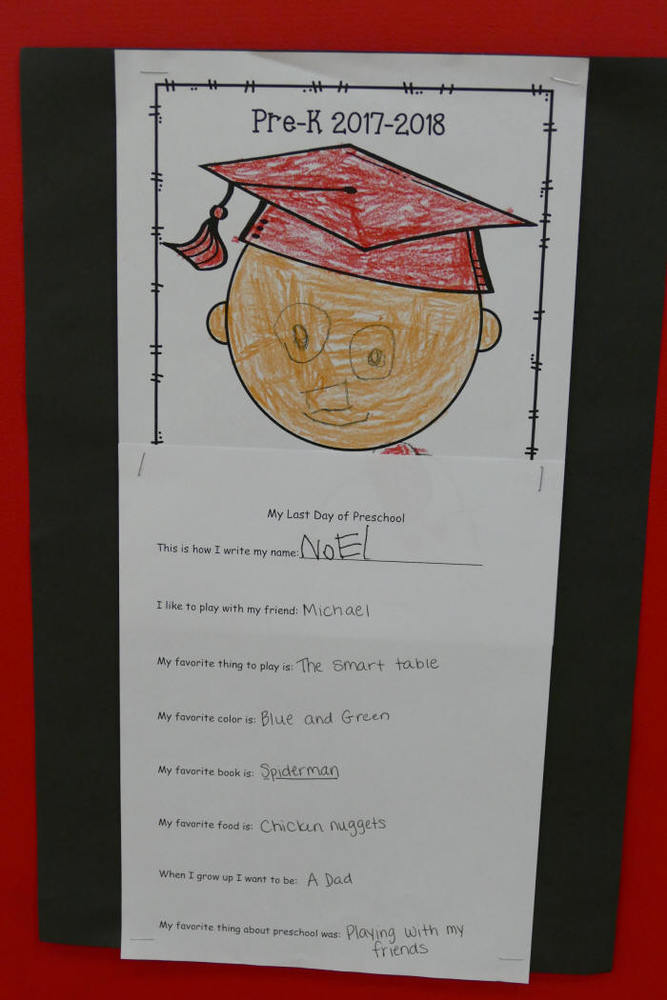 Pre-K 2017-2018
My Last Day of Preschool
This is how I write my name: NoEl
I like to play with my friend: Michael
My favorite thing to play is: The smart table
My favorite color is: Blue and Green
My favorite book is: Spiderman
My favorite food is: Chicken nuggets
When I grow up I want to be: A Dad
My favorite thing about preschool was: Playing with my
friends